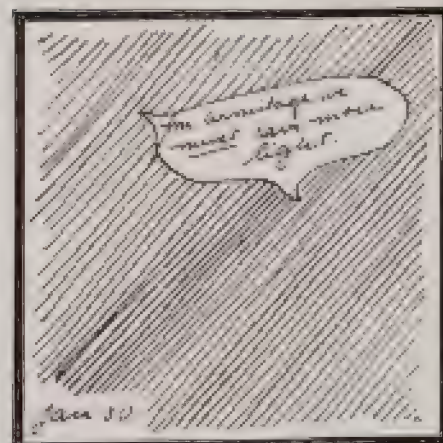 Mr Armitage we
must have more
light.
Jan